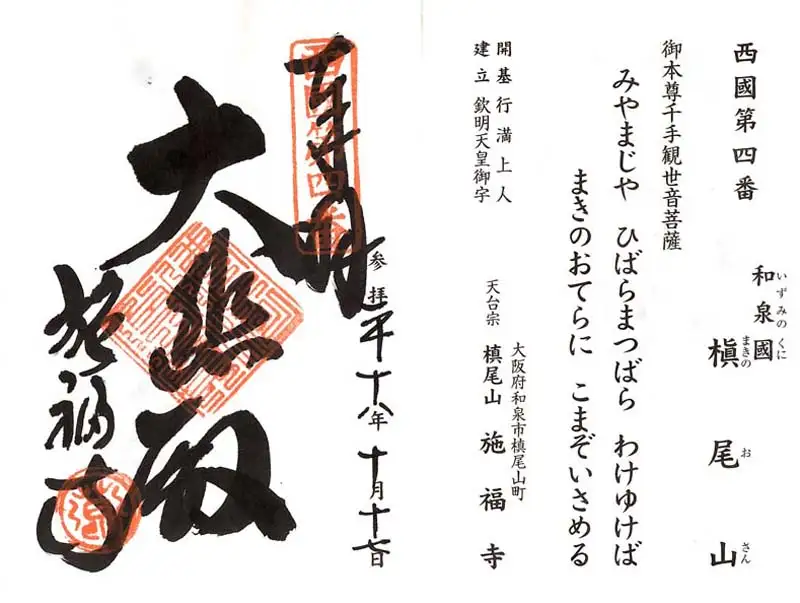 西國第四番
和泉國
いずみのくに
槇尾山
まきの お さん
御本尊千手観世音菩薩
みやまじや ひばらまつばら わけゆけば
まきのおてらに こまぞいさめる
開基 行満上人
建立 欽明天皇御宇
大阪府和泉市槙尾山町
天台宗 槙尾山 施福寺
西国第四番
奉拝
参拝 平十八年十月十七日
大悲殿
施福寺